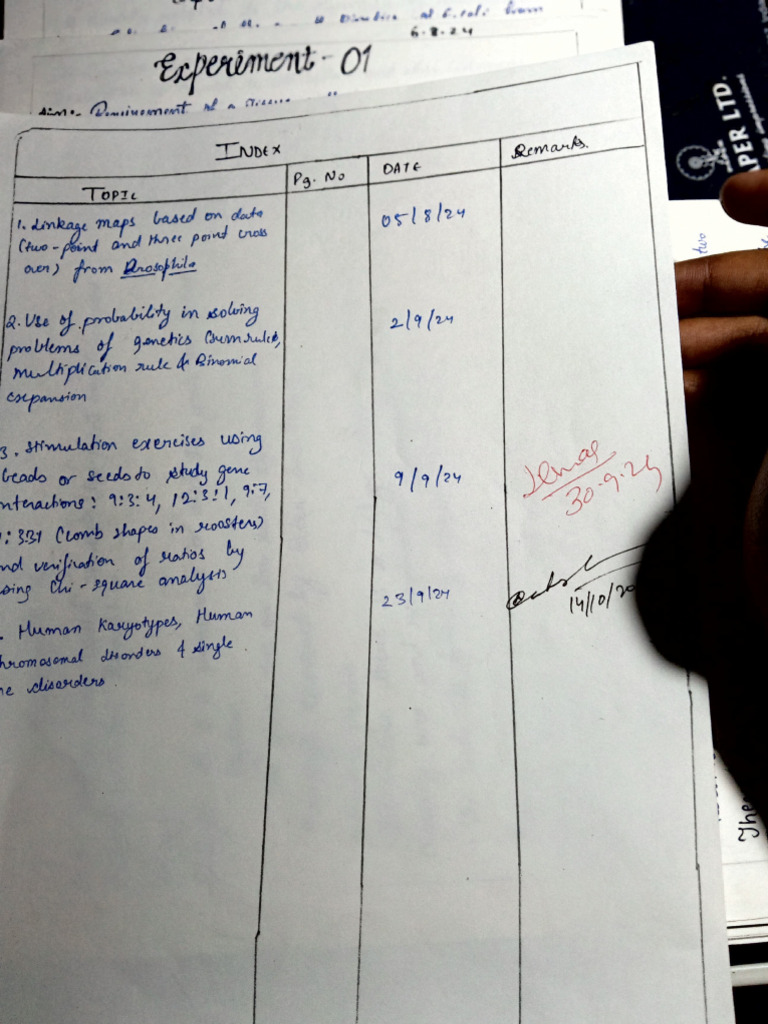 6.8.24
Experiment-01
Aim:- Requirement of a
INDEX
TOPIC
Pg. No
DATE
Remarks.
1. Linkage maps based on data
(two-point and three point cross
over) from Drosophila
05/8/24
2. Use of probability in solving
problems of genetics (sum rule,
multiplication rule & Binomial
expansion
2/9/24
3. Stimulation exercises using
beads or seeds to study gene
interactions: 9:3:4, 12:3:1, 9:7,
:331 (comb shapes in roosters)
nd verification of ratios by
sing Chi-square analysis
9/9/24
30.9.24
. Human Karyotypes, Human
hromosomal disorders & single
ne disorders.
23/9/24
14/10/20
PER LTD.
two
The